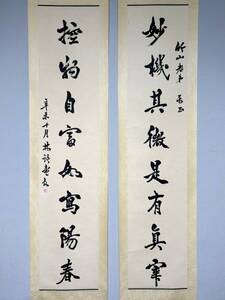 竹山老弟
妙機其微是有真宰
控物自富如寫陽春
辛未十月 林